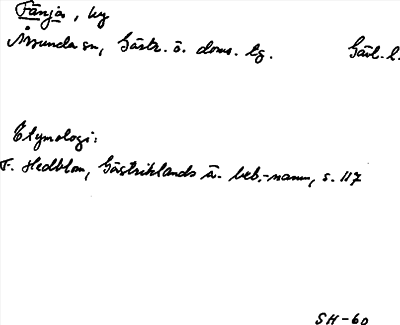 Fänja, by
Årsunda sn, Gästr. ö. doms. tg. Gävl. l.
Etymologi:
F. Hedblom, Gästriklands ä. beb.-namn, s. 117
SH-60